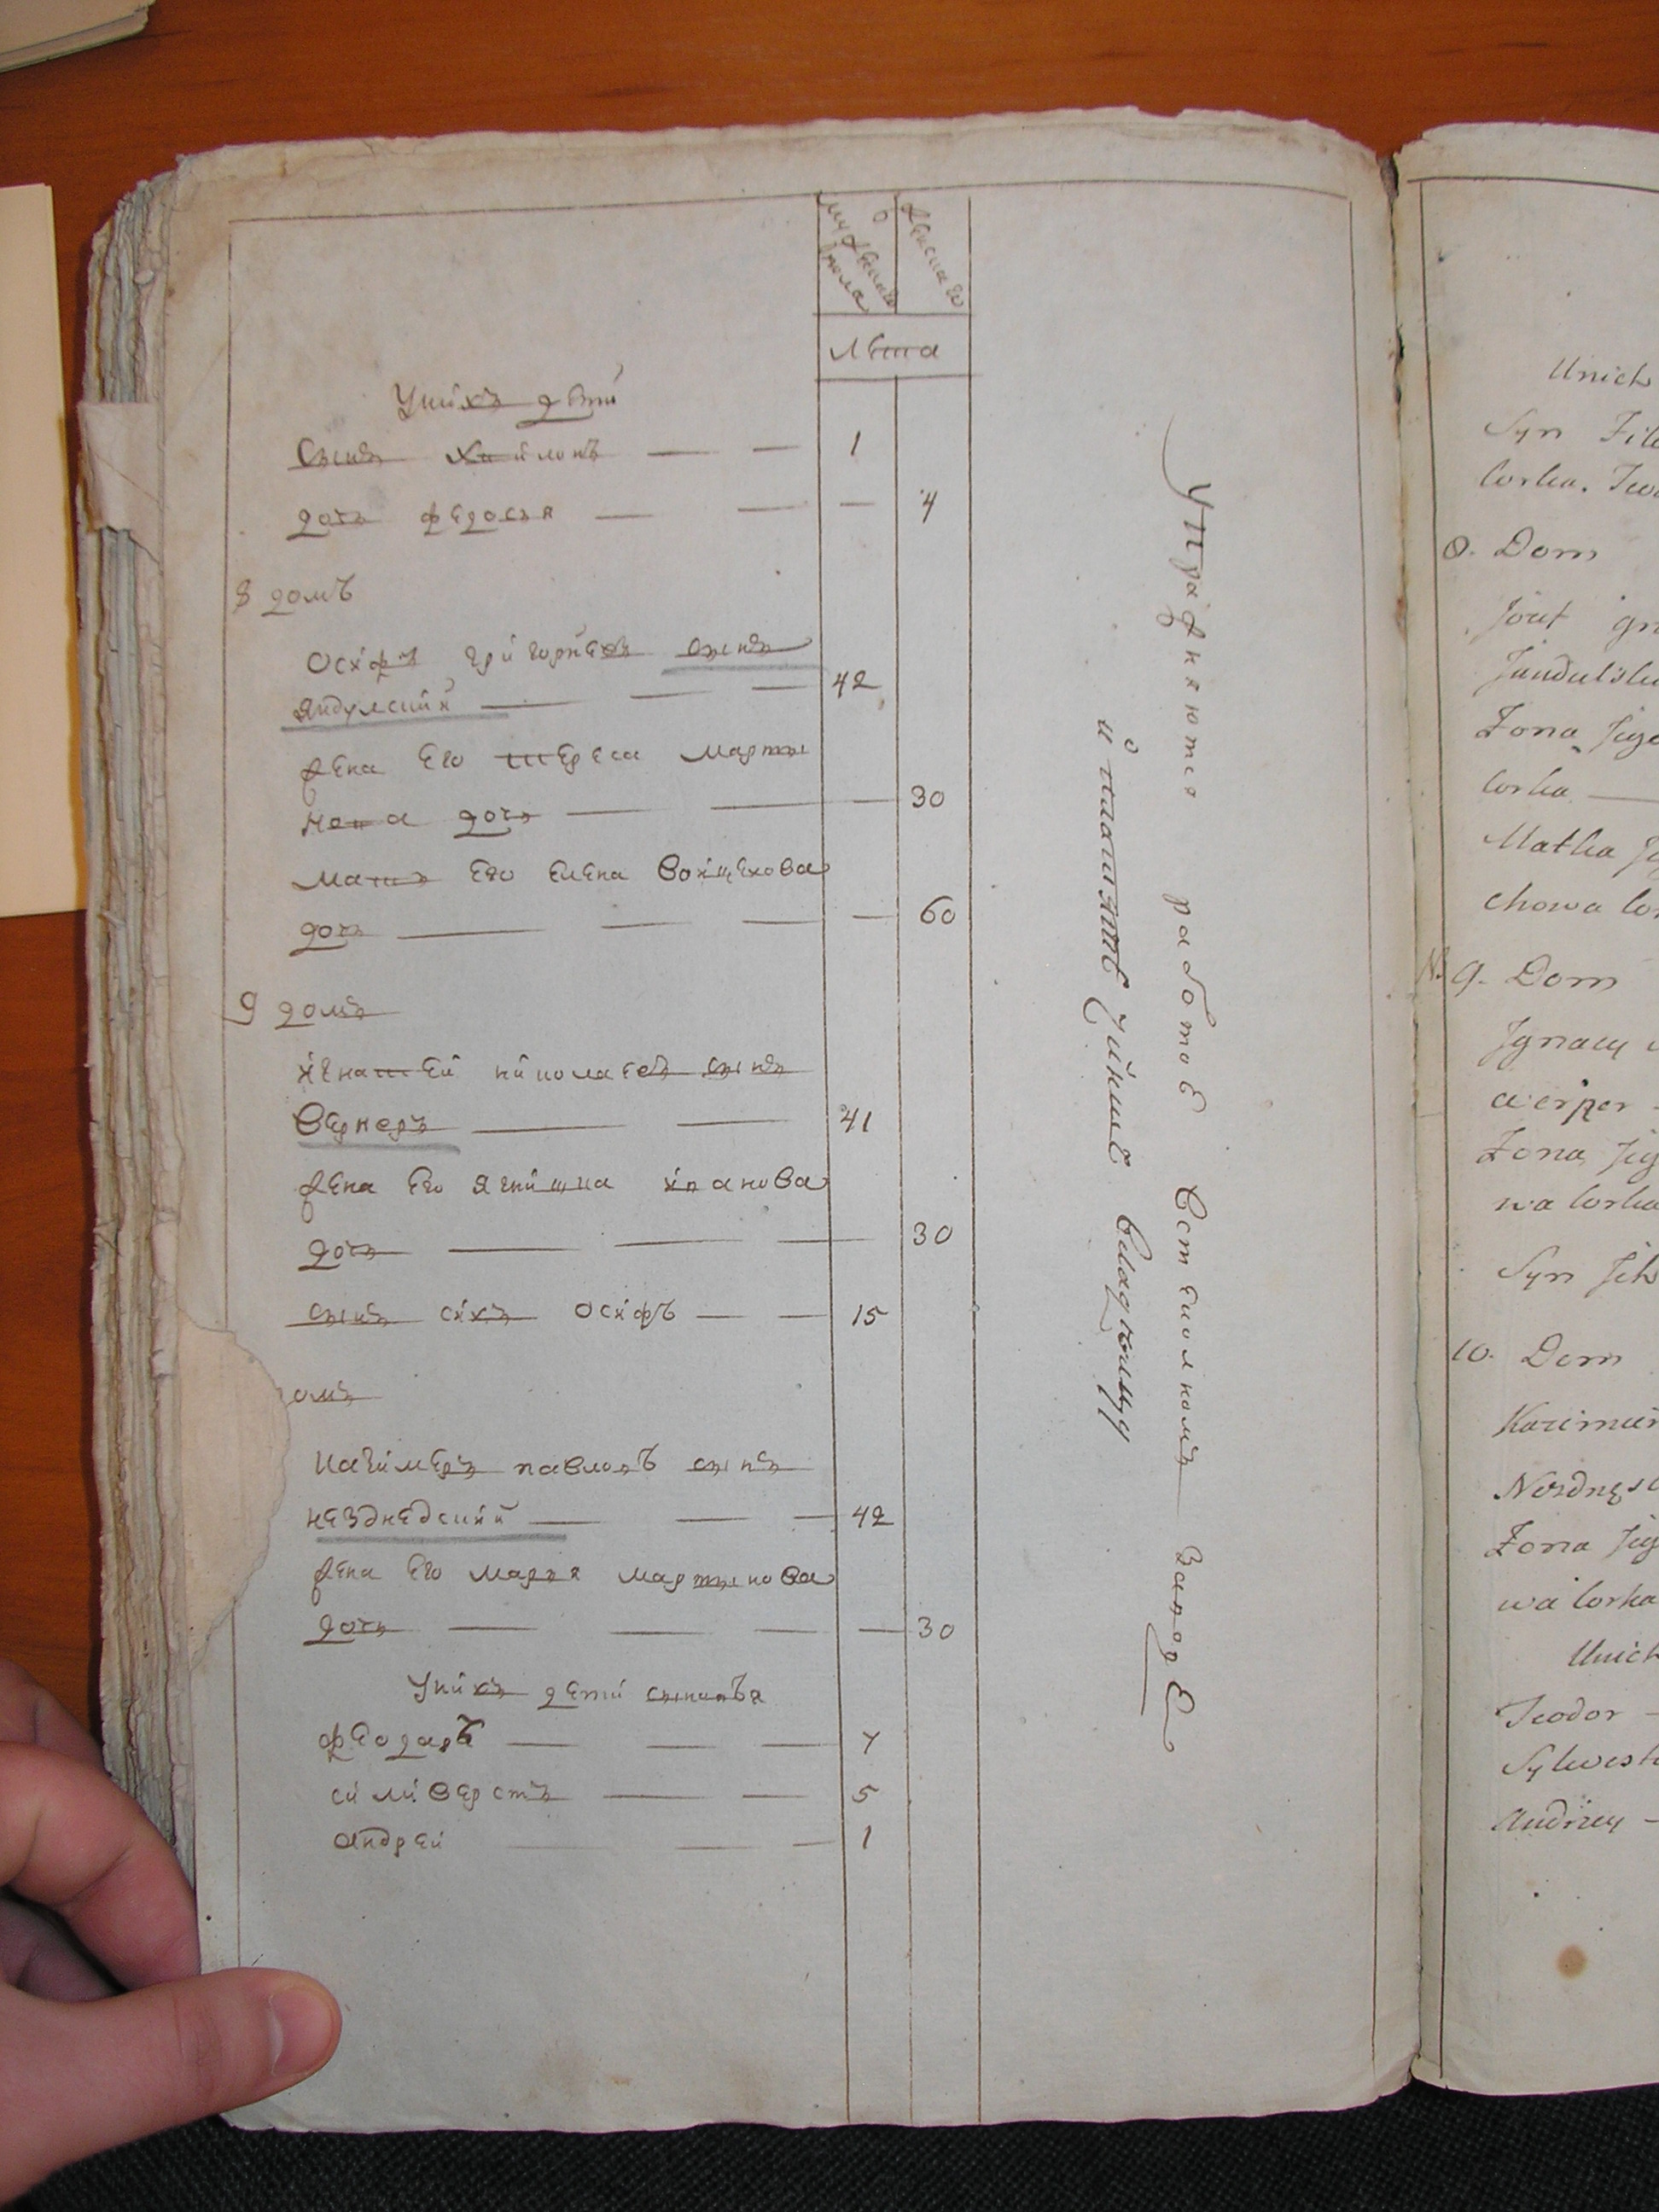 мужеска пола
женска
лѣта
У нихъ дѣти
сынъ Филипъ — — 1
дочь федосья — — — 4
8 домъ
Осифъ григорьевъ сынъ
яндулский — — — 42
жена Его тереса марты
нова дочь — — — 30
мать Его Елена Войцехова
дочь — — — — 60
9 домъ
игнатей николаевъ сынъ
Вернеръ — — 41
жена Его ягнишка иванова
дочь — — — 30
сынъ ихъ осифъ — — 15
омъ
казимеръ павловъ сынъ
незднедский — — — 42
жена Его марья мартынова
дочь — — — — 30
У нихъ дети сыновья
феодаръ — — — 7
силиверстъ — — 5
андрей — — — 1
Упражняются работою в стекольномъ заводе
и платятъ чиншъ владельцу
Unich
Syn Fil
Corka. Teo
8. Dom
Jozef gr
Jandulsk
Zona Jeg
Corka —
Matka J
chowa Cor
N. 9. Dom
Jgnacy
Werner -
Zona Jeg
wa Corka
Syn Jch
10. Dom
Kazimier
Nezdnes
Zona Jeg
wa Corka
Unich
Teodor -
Sylwest
Andrzey -